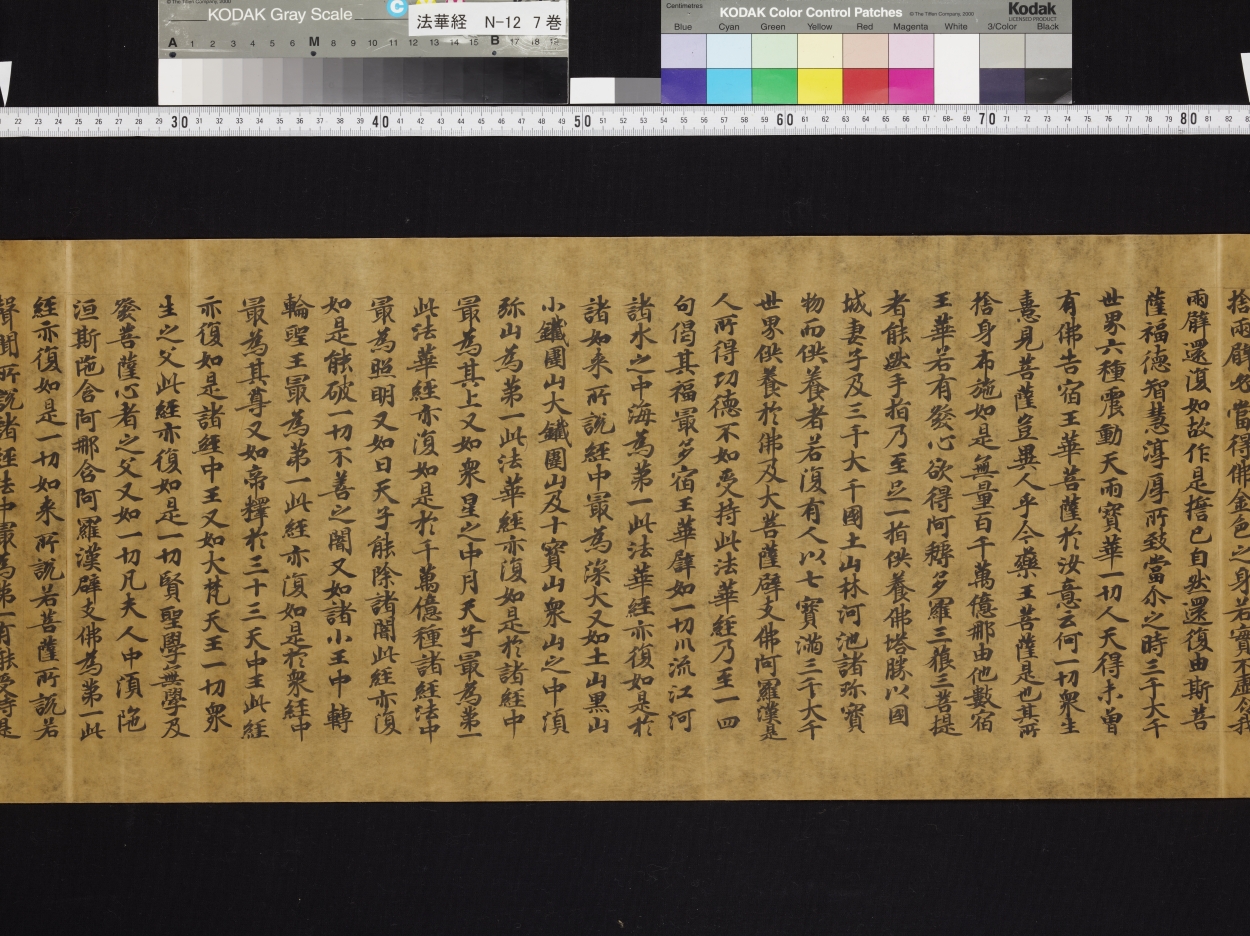 KODAK Gray Scale
© The Tiffen Company, 2000
法華経 N-12 7巻
A 1 2 3 4 5 6 M 8 9 10 11 12 13 14 15 B 17 18 19
Centimetres
KODAK Color Control Patches
© The Tiffen Company, 2000
Kodak
LICENSED PRODUCT
Blue Cyan Green Yellow Red Magenta White 3/Color Black
22 23 24 25 26 27 28 29 30 31 32 33 34 35 36 37 38 39 40 41 42 43 44 45 46 47 48 49 50 51 52 53 54 55 56 57 58 59 60 61 62 63 64 65 66 67 68 69 70 71 72 73 74 75 76 77 78 79 80 81 82
捨兩臂必當得佛金色之身若實不虛令我
兩臂還復如故作是擔已自然還復由斯菩
薩福德智慧淳厚所致當尒之時三千大千
世界六種震動天雨寶華一切人天得未曾
有佛告宿王華菩薩於汝意云何一切衆生
憙見菩薩豈異人乎今藥王菩薩是也其所
捨身布施如是無量百千萬億那由他數宿
王華若有發心欲得阿耨多羅三藐三菩提
者能燃手指乃至足一指供養佛塔勝以國
城妻子及三千大千國土山林河池諸弥寶
物而供養者若復有人以七寶滿三千大千
世界供養於佛及大菩薩辟支佛阿羅漢是
人所得功德不如受持此法華經乃至一四
句偈其福最多宿王華辟如一切川流江河
諸水之中海為第一此法華經亦復如是於
諸如来所說經中最為深大又如土山黑山
小鐵圍山大鐵圍山及十寶山衆山之中須
弥山為第一此法華經亦復如是於諸經中
最為其上又如衆星之中月天子最為第一
此法華經亦復如是於千萬億種諸經法中
最為照明又如日天子能除諸闇此經亦復
如是能破一切不善之闇又如諸小王中轉
輪聖王最為第一此經亦復如是於衆經中
最為其尊又如帝釋於三十三天中王此經
亦復如是諸經中王又如大梵天王一切衆
生之父此經亦復如是一切賢聖學無學及
發菩薩心者之父又如一切凡夫人中湏陁
洹斯陁含阿那含阿羅漢辟支佛為第一此
經亦復如是一切如来所說若菩薩所說若
聲聞所說諸經法中最為第一有能受持是